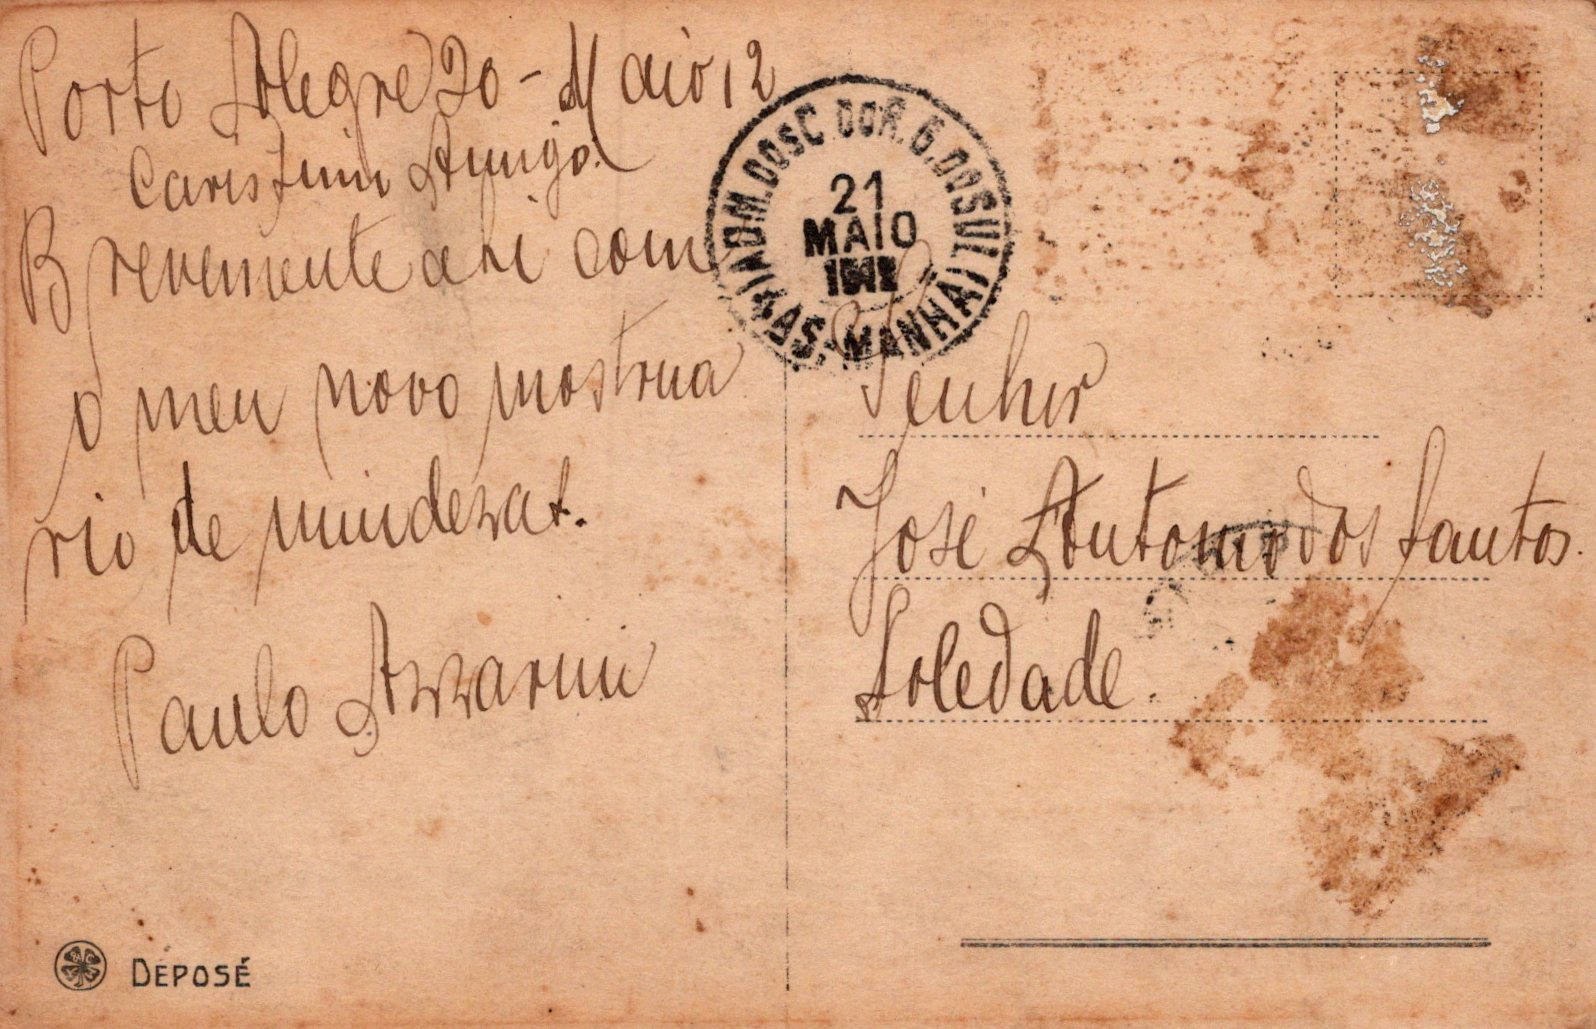 Porto Alegre 20 - Maio 12
Caristimo Amigo.
Brevemente ahi com
o meu novo mostrua
rio de miudezas.
Paulo Azzarini
ADM. DOS C. DO R. G. DO SUL
21
MAIO
1912
MANHÃ
Senhor
José Antonio dos Santos.
Soledade.
DEPOSÉ